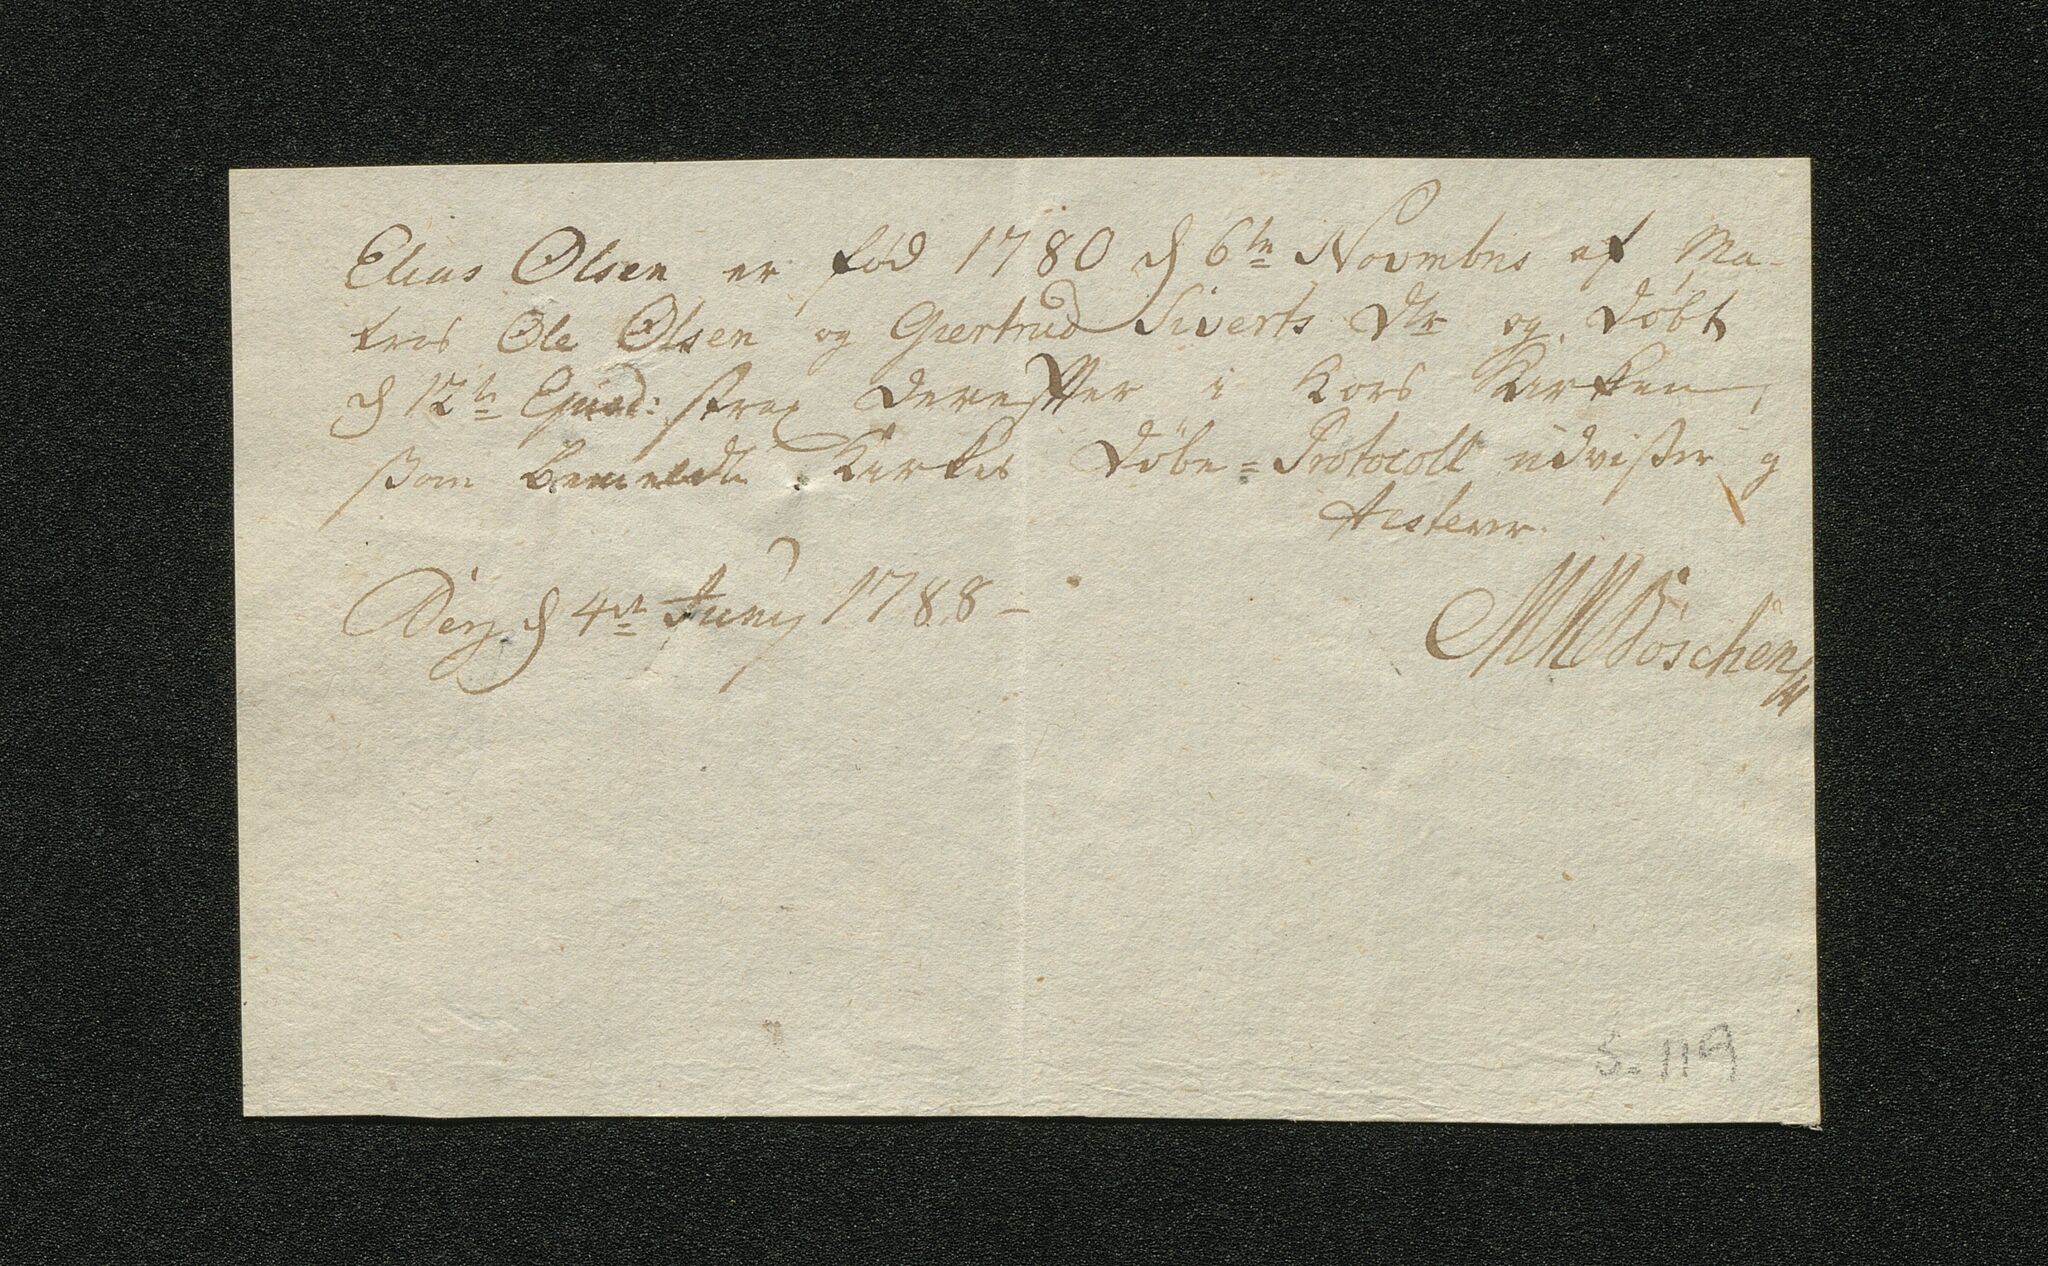 Elias Olsen er fød 1780 d 6te Novembris af Ma-
tros Ole Olsen og Giertrud Siverts Dtr og døbt
d 12te Ejusd: strax derefter i Kors Kirken,
som bemeldte Kirkes Døbe=Protocoll udviser og
Attesterer.
Berg. d 4de Juny 1788 –
Böschen
S. 119